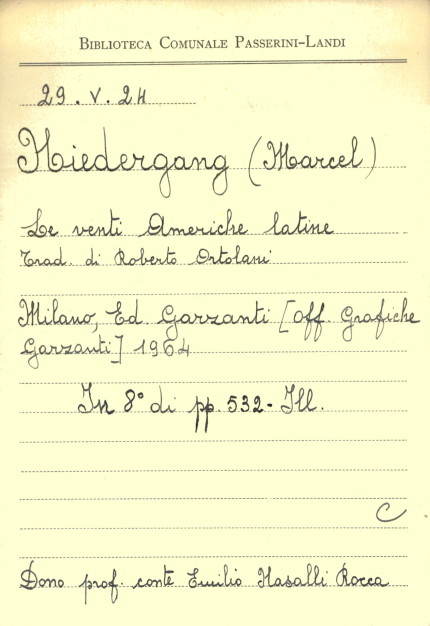 BIBLIOTECA COMUNALE PASSERINI-LANDI
29.V.24
Niedergang (Marcel)
Le venti Americhe latine
Trad. di Roberto Ortolani
Milano, Ed. Garzanti [Off. Grafiche
Garzanti] 1964
In 8° di pp. 532 - Ill.
C
Dono prof. conte Emilio Nasalli Rocca